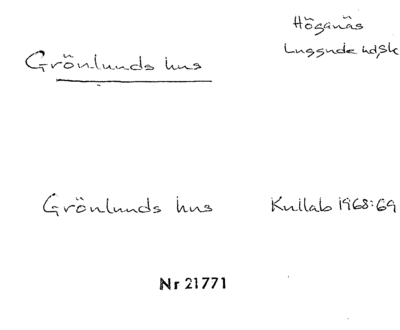 Grönlunds hus
Höganäs
Luggude hdsk
Grönlunds hus
Kullab 1968:69
Nr 21771